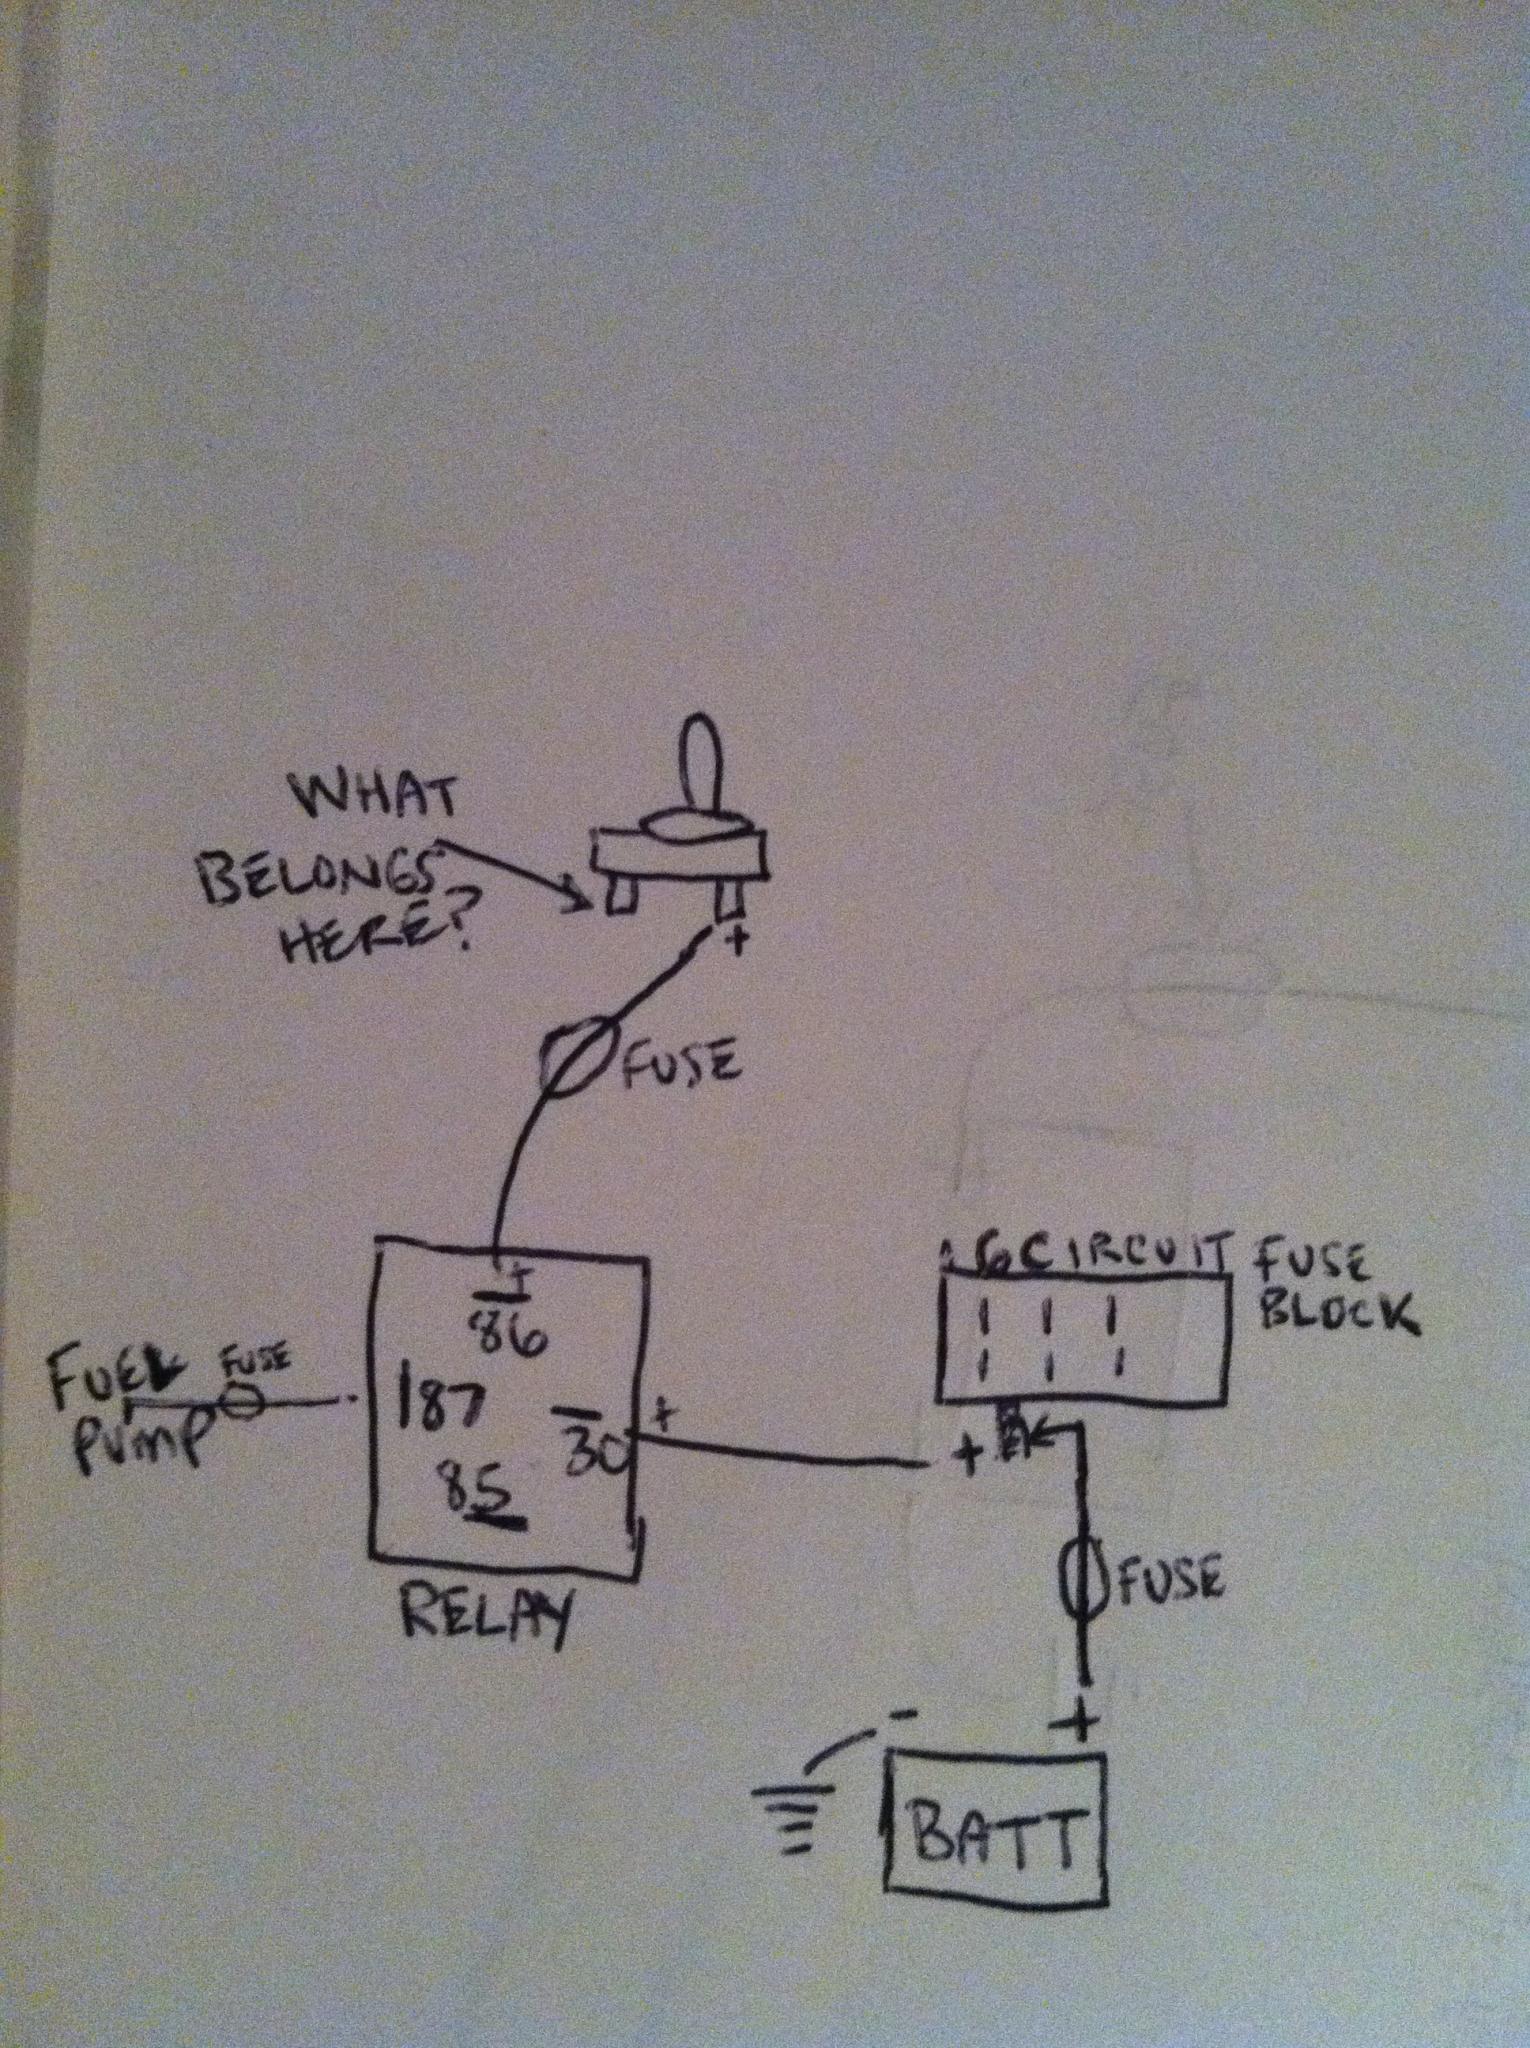 WHAT
BELONGS
HERE?
+
FUSE
6 CIRCUIT FUSE
BLOCK
+
86
FUEL
PUMP
FUSE
87
30
+
85
+
RELAY
FUSE
-
+
BATT